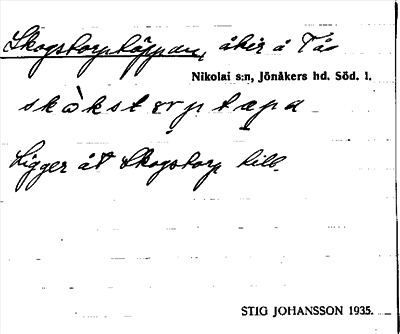 Skogstorptäppan, åker å Tå
Nikolai s:n, Jönåkers hd. Söd. l.
skòkstɒrptæpa
Ligger åt Skogstorp till.
STIG JOHANSSON 1935.